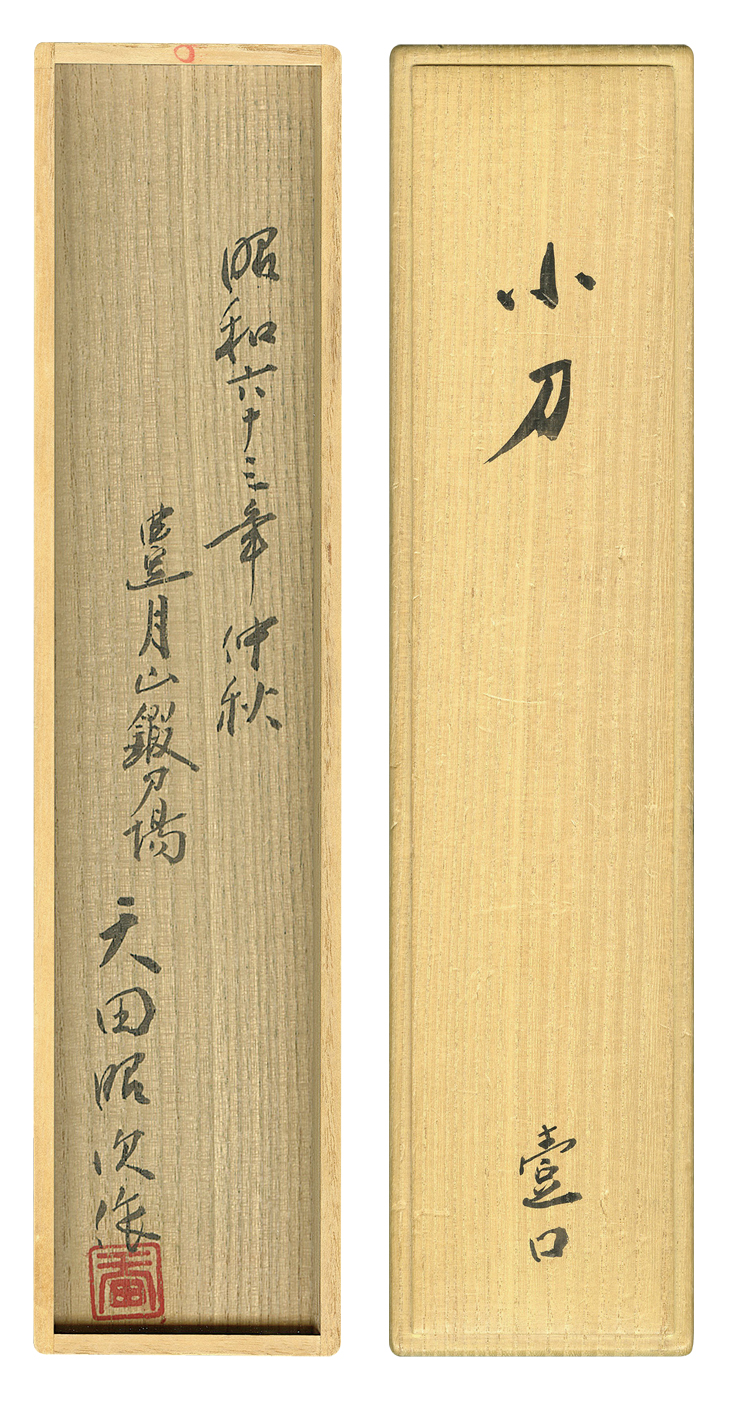 小刀
壹口
昭和六十三年仲秋
豊月山鍛刀場
天田昭次作